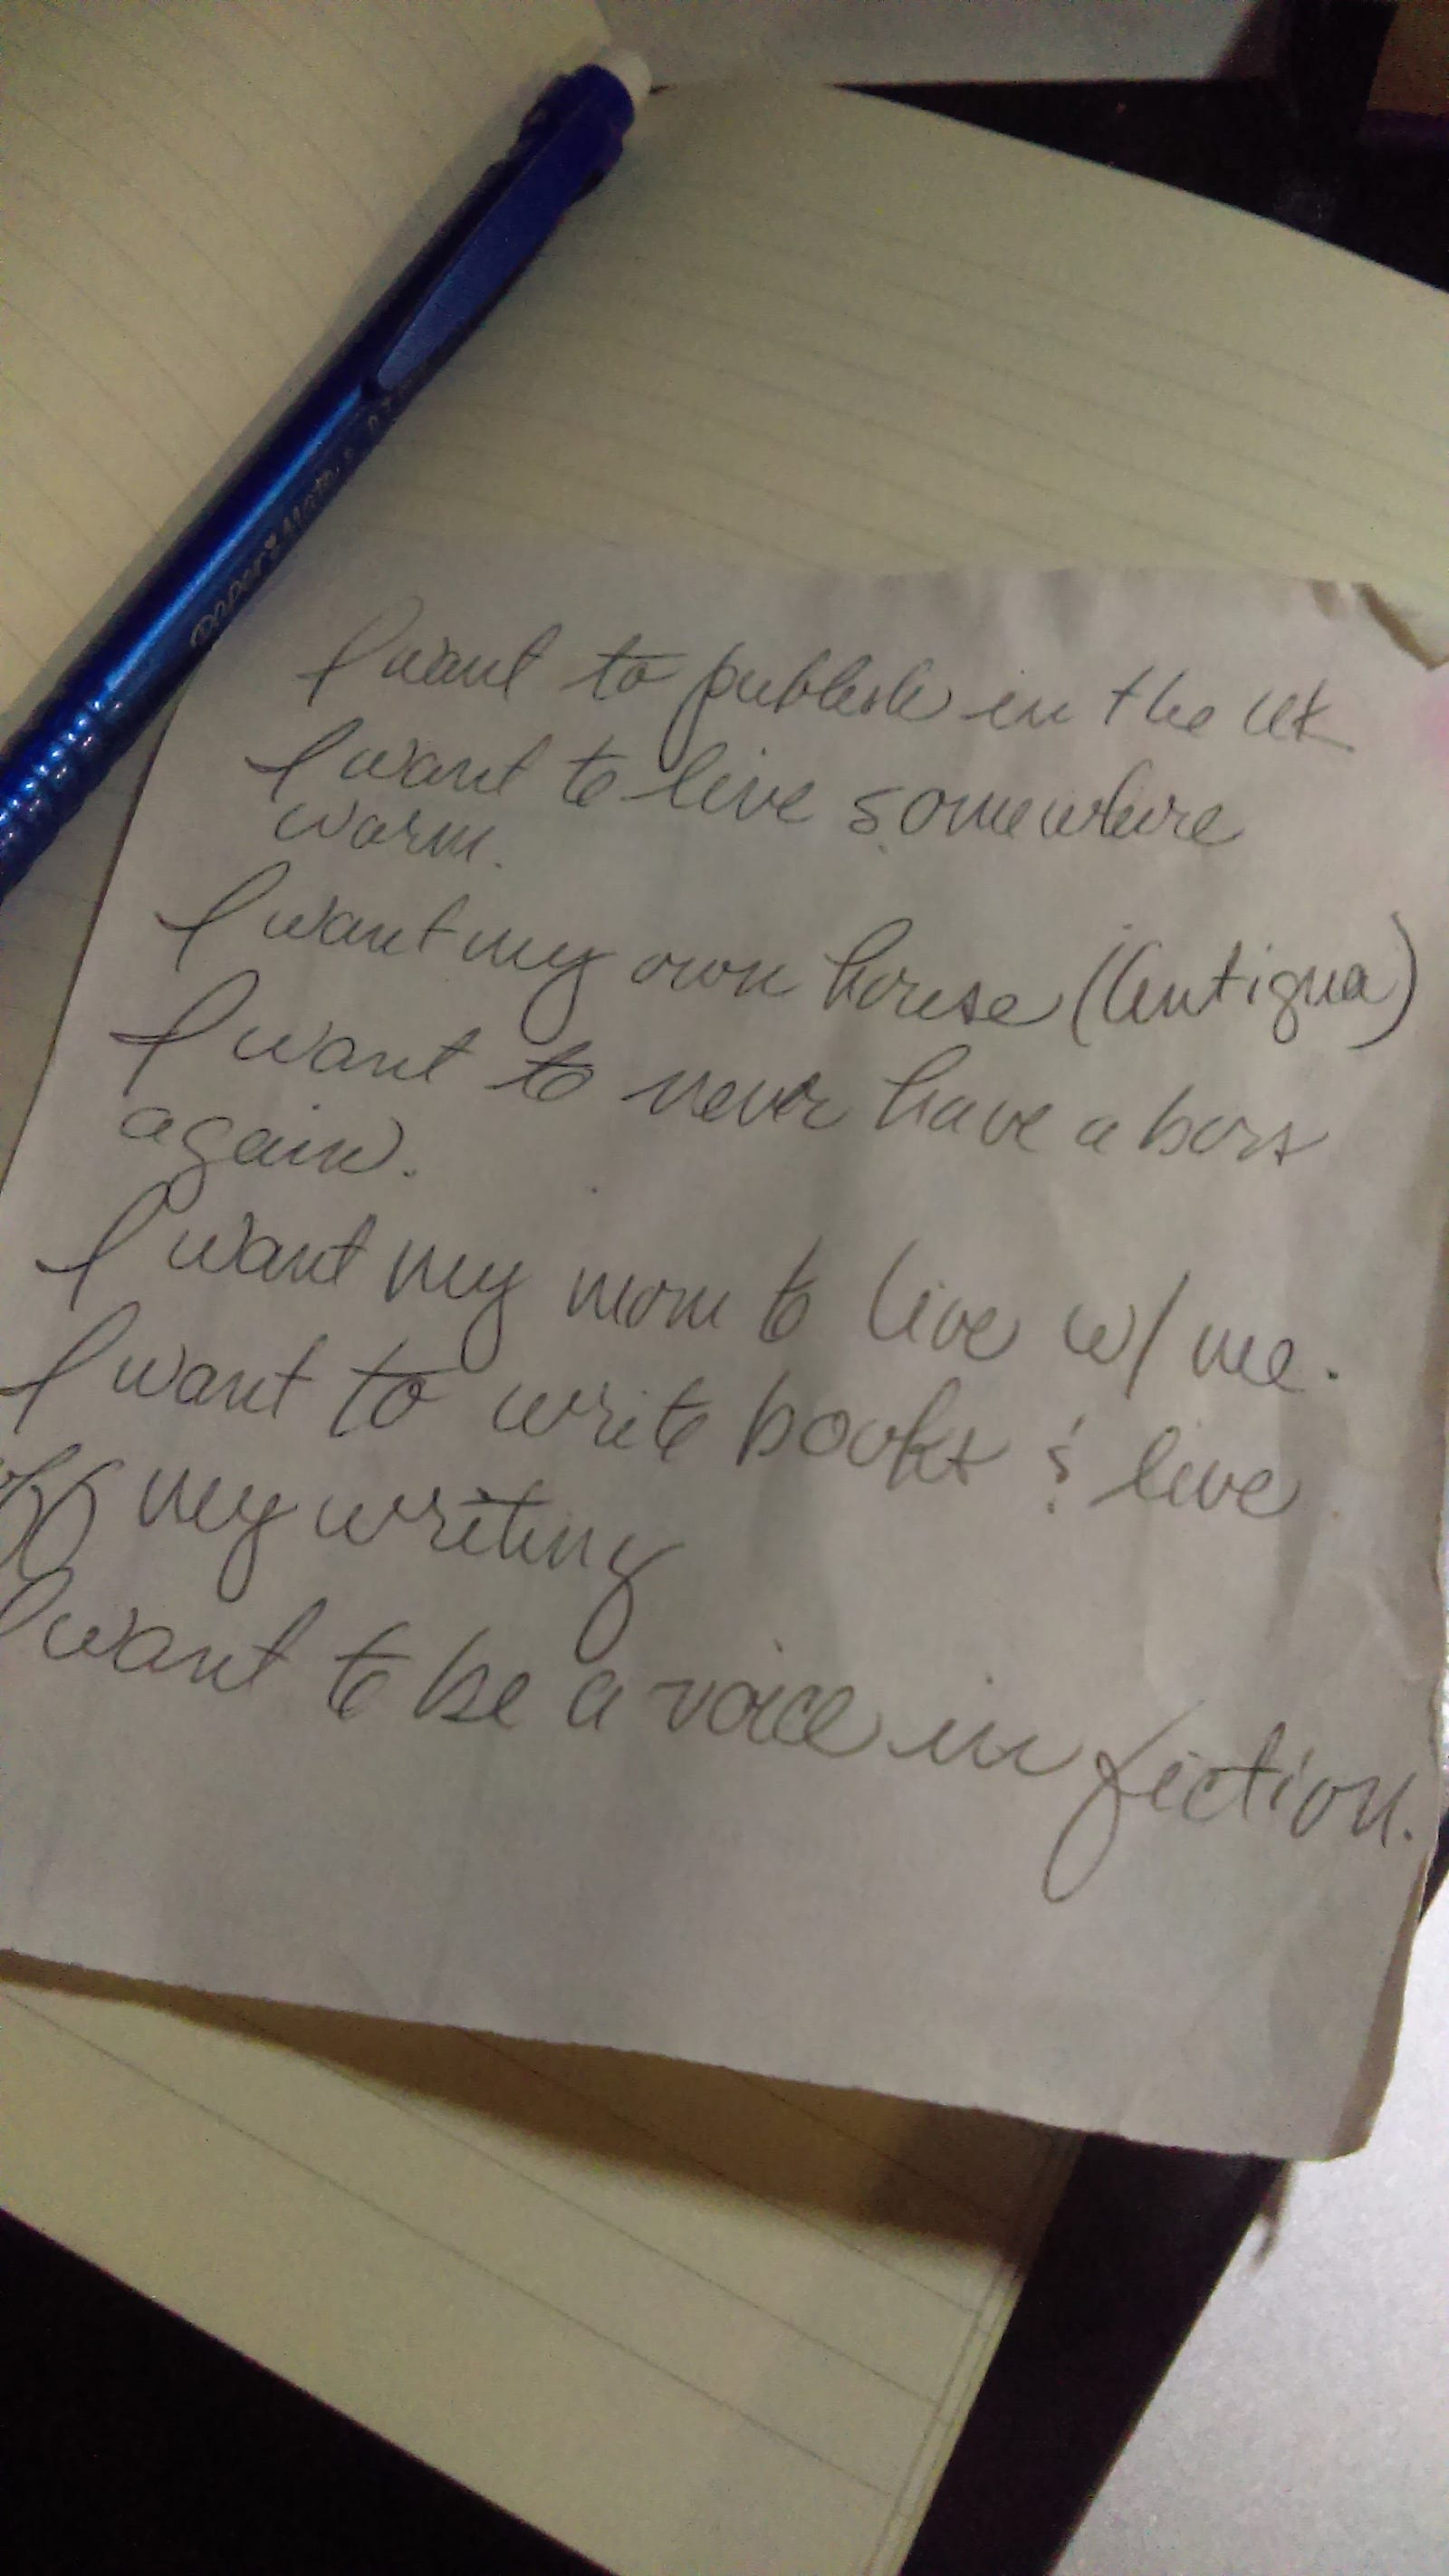 Paper Mate 0.7
I want to publish in the UK.
I want to live somewhere
warm.
I want my own house (Antigua)
I want to never have a boss
again.
I want my mom to live w/ me.
I want to write books & live
off my writing
I want to be a voice in fiction.